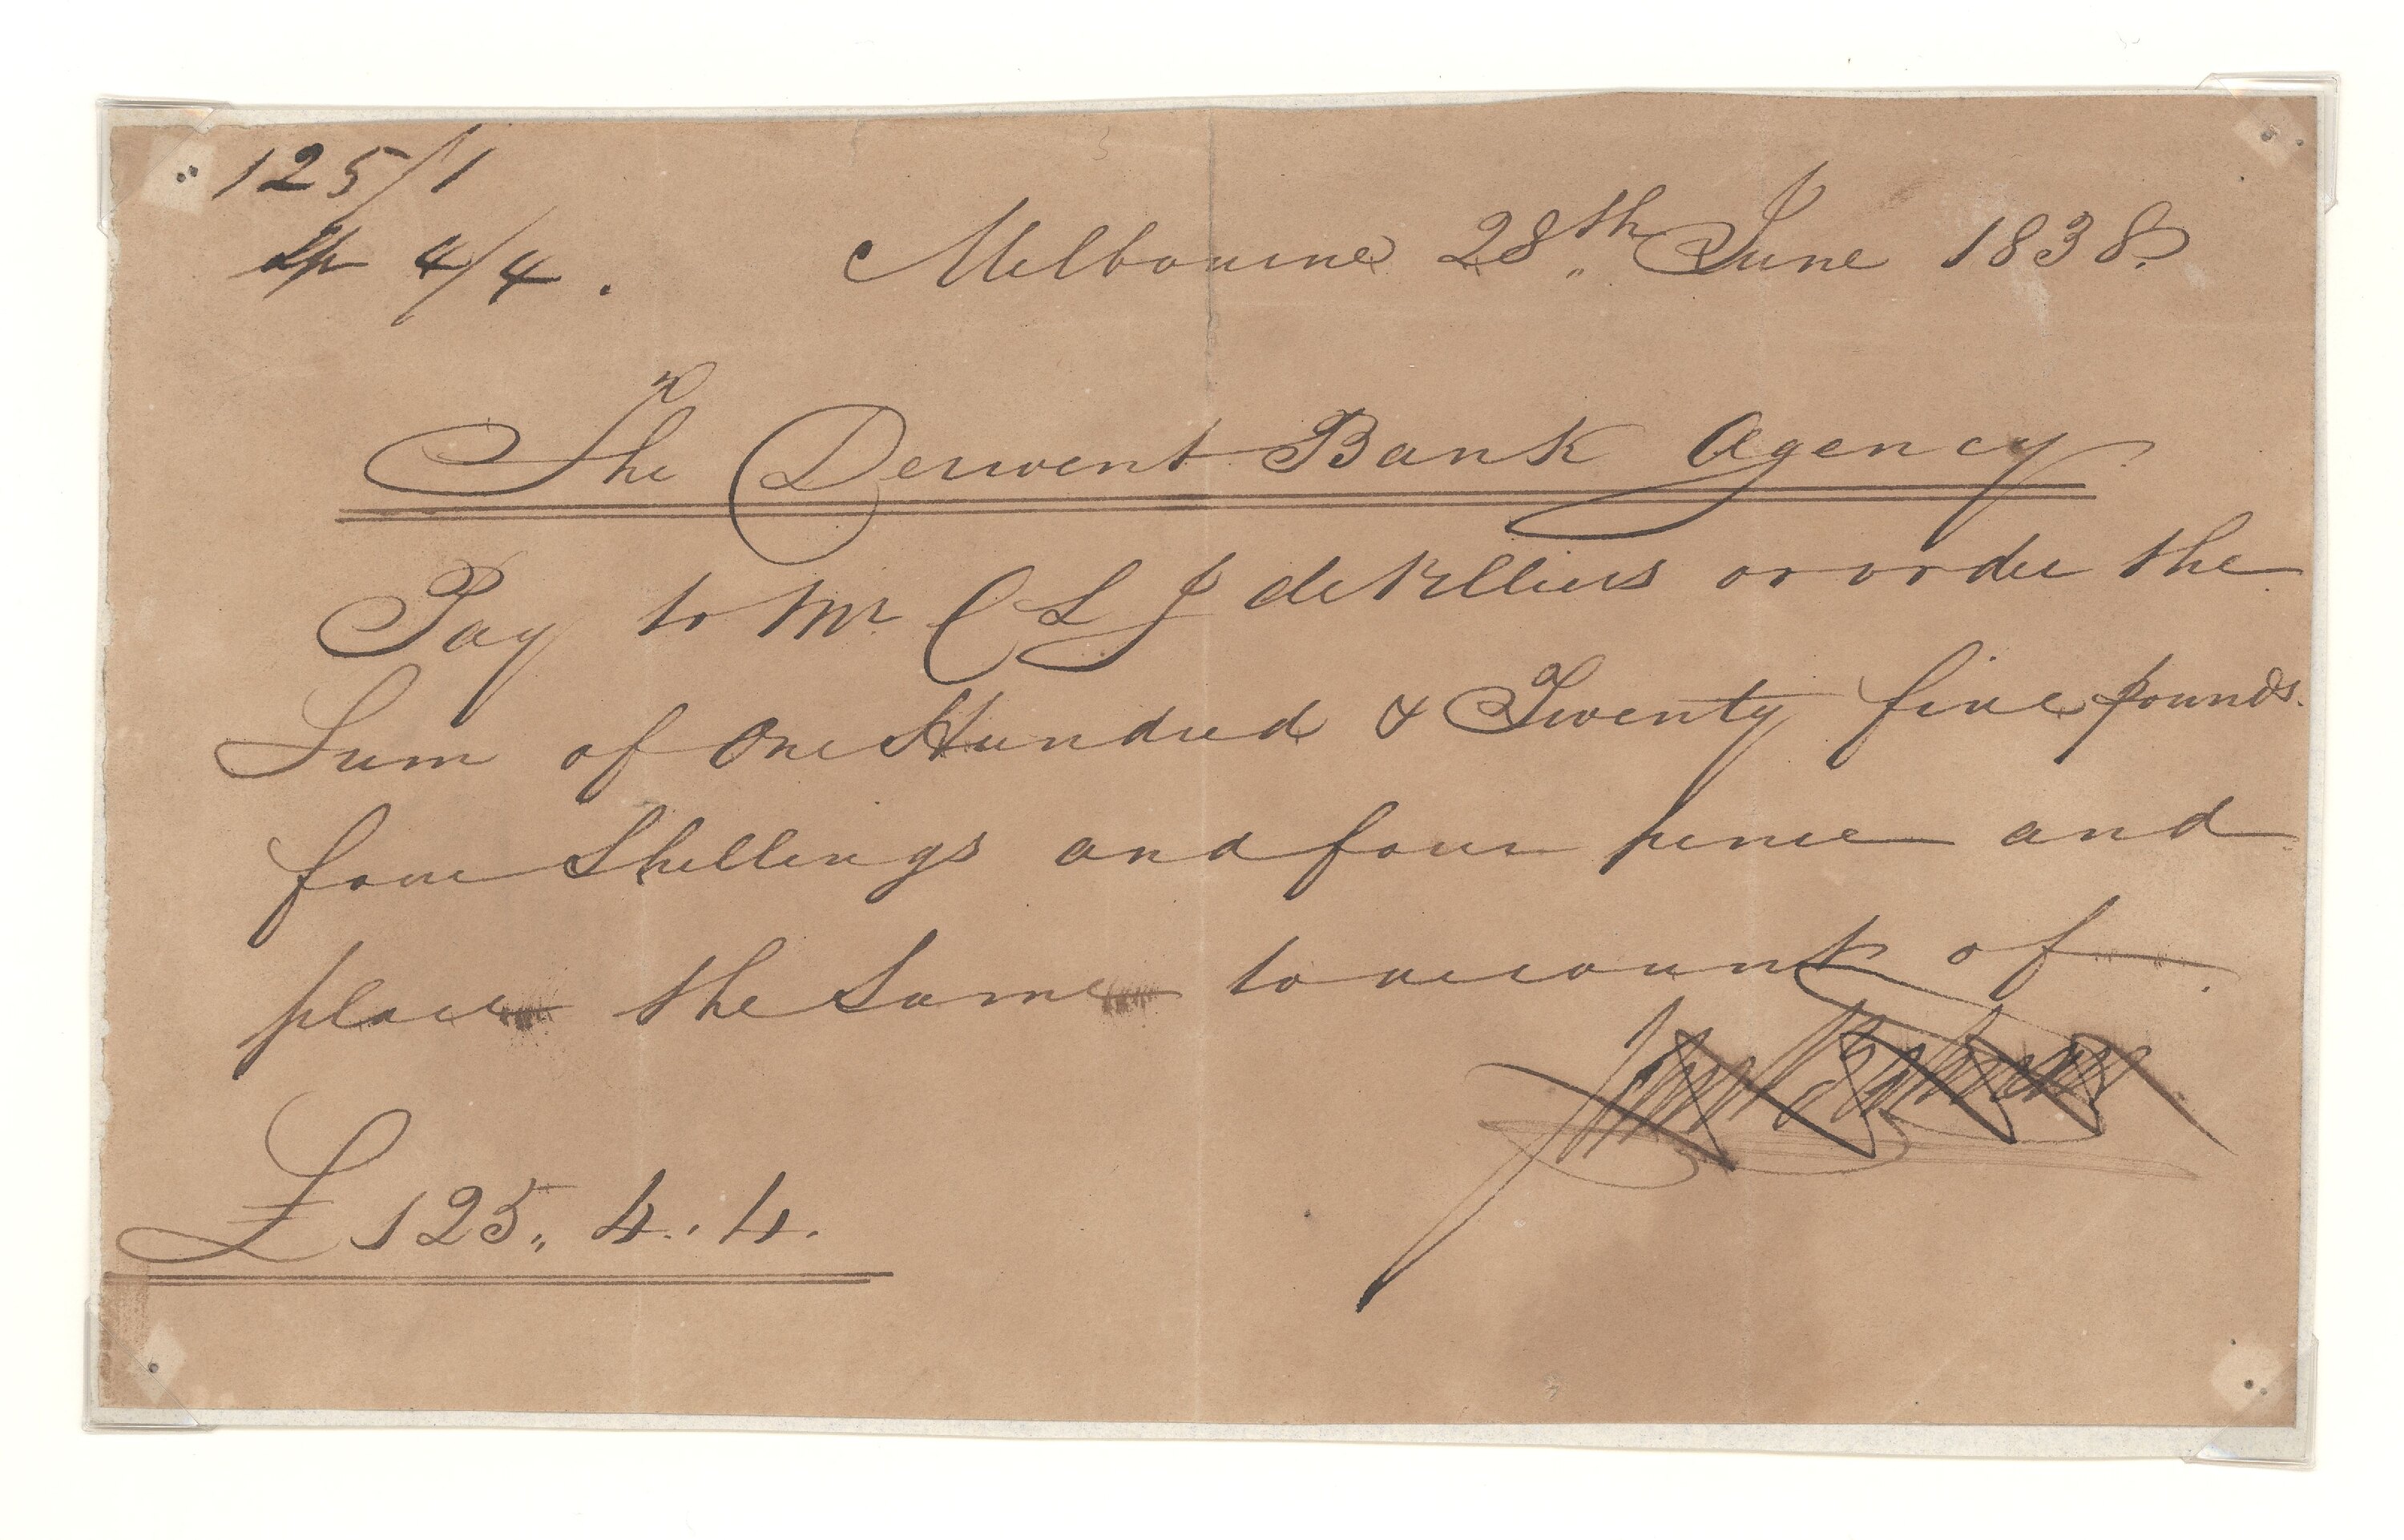 125/1
4/4.
Melbourne 28th June 1838.
The Derwent Bank Agency
Pay to Mr C L J de Villiers or order the
Sum of One Hundred & Twenty five pounds.
four Shillings and four pence and
place the Same to account of
£125,, 4.. 4.